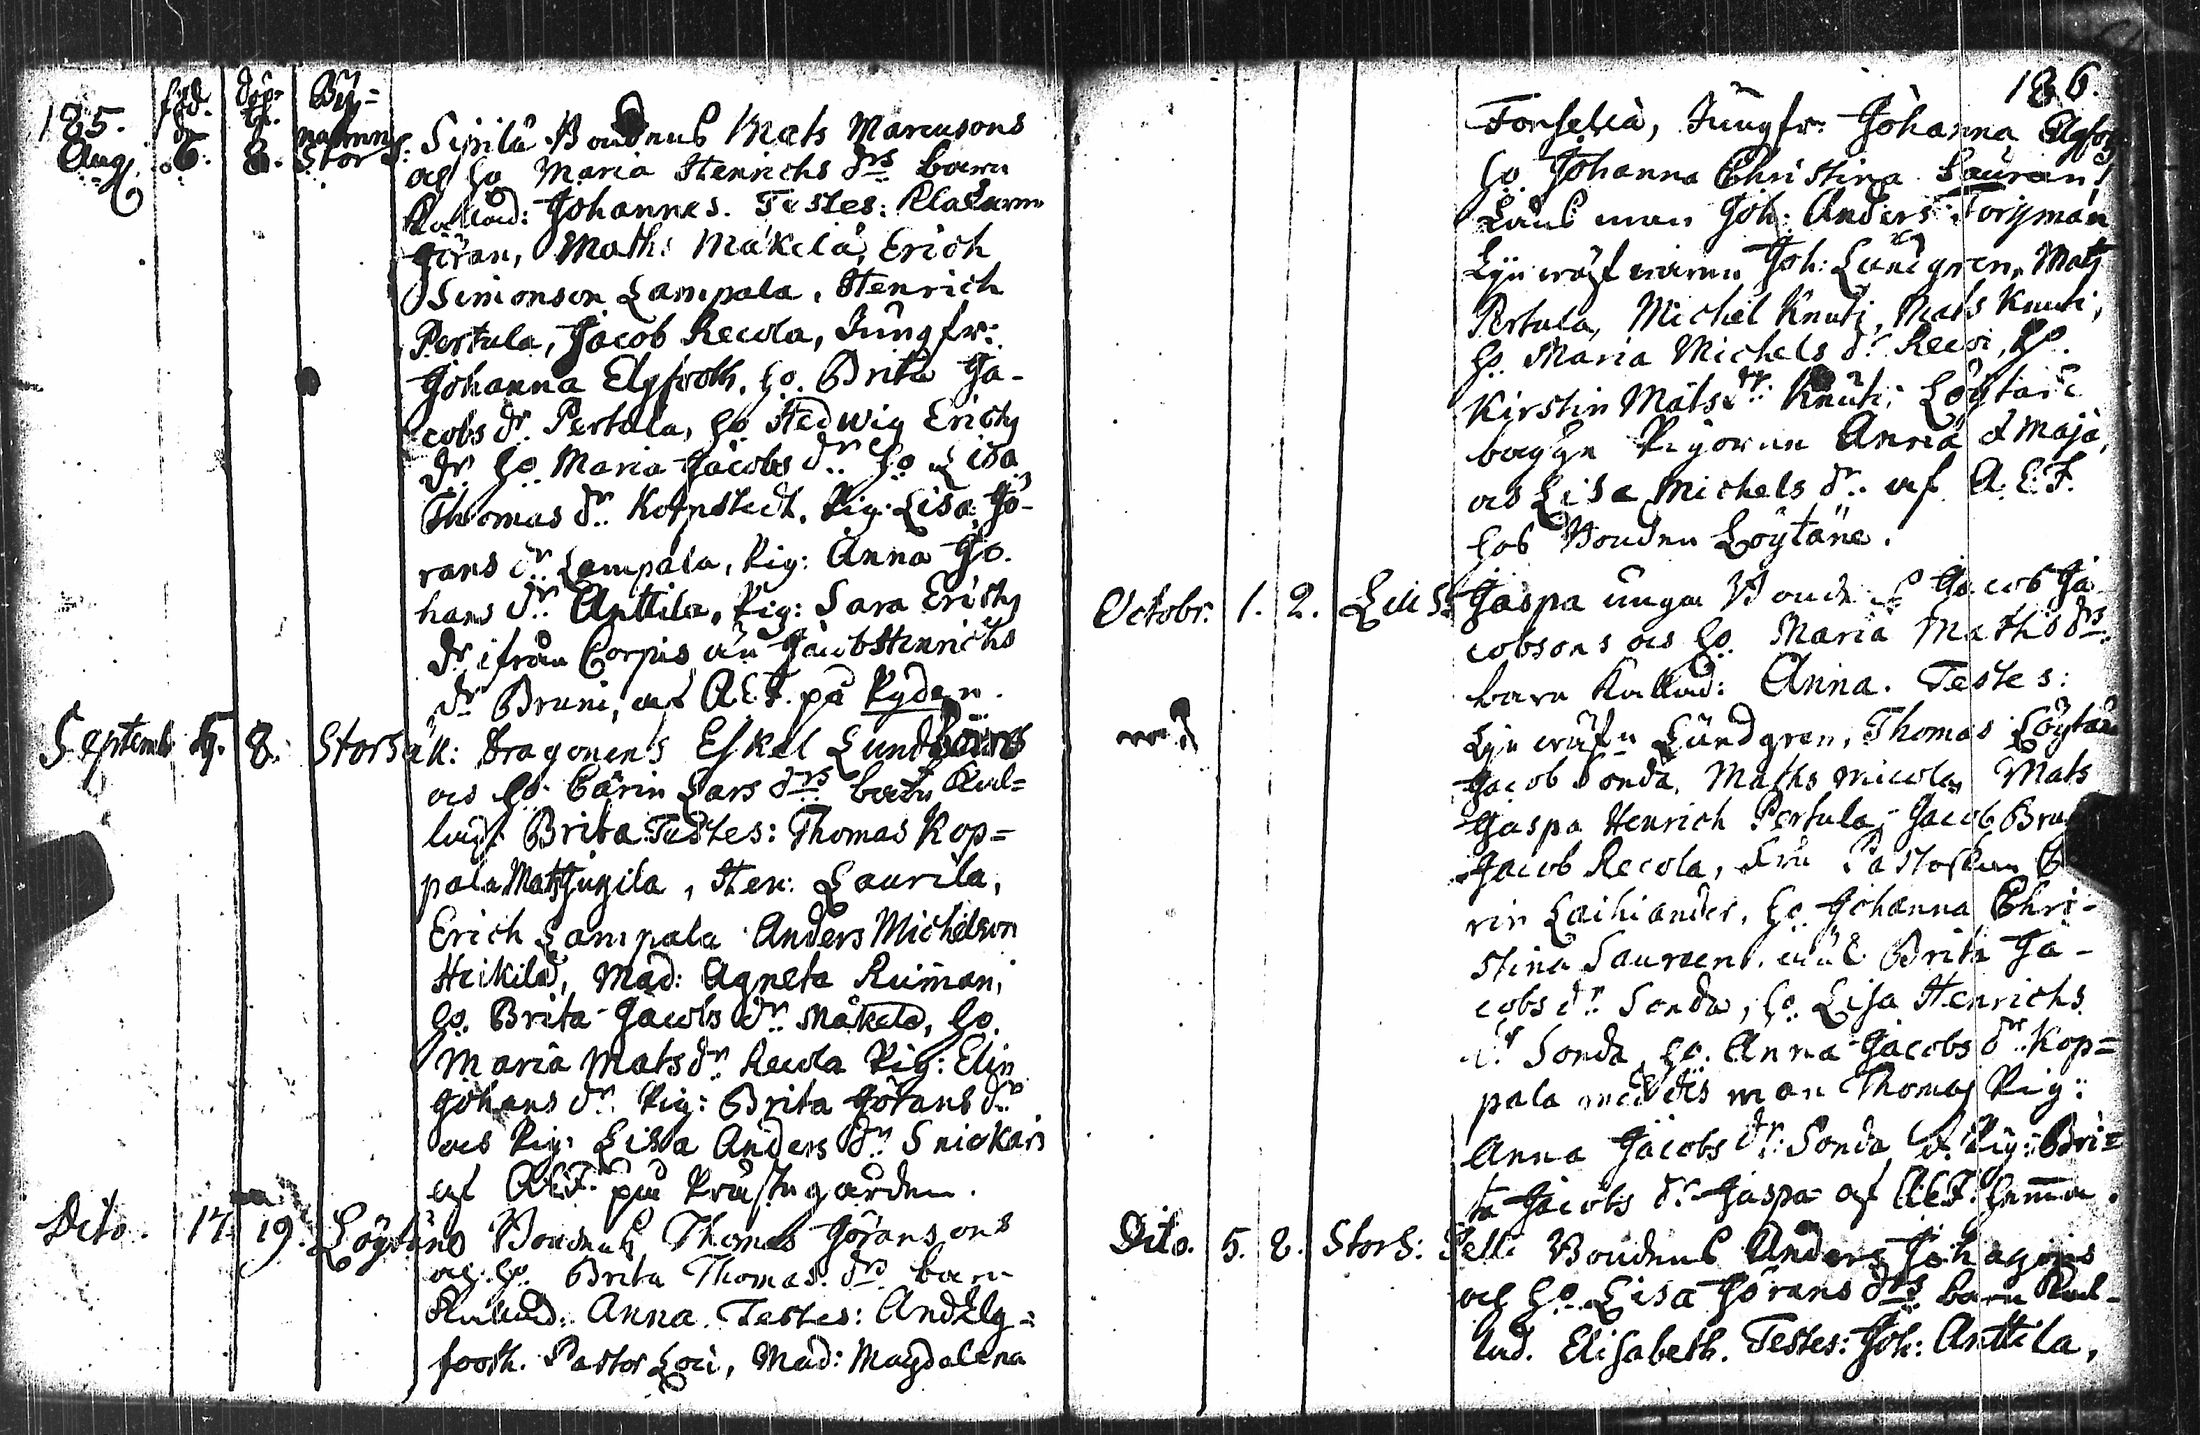 185. föd. döp- By=
d. te. namnen
Aug. 6. 8. Stor S. Sipilä Bondens Mats Marcusons
och ho Maria Henrichs drs barn
Kallad: Johannes. Testes: Klåkaren
Göran, Maths Mäkelä, Erich
Simonson Lampala, Henrich
Pertula, Jacob Recola, Jungfr:
Johanna Elgfooth. ho. Brita Ja-
cobs dr. Pertula, ho Hedwig Erichs
dr. ho Maria Jacobs dr. ho Lisa
Thomas dr. Kornstedt. Pig: Lisa Gö-
rans dr. Lampala, Pig: Anna Jo-
hans dr. Anttila, Pig: Sara Erichs
dr ifrån Corpis Jacob Henrichs
dr Bruni, af A.E.F. på Ryden.
Septemb. 5. 8. Storsäk: Dragonens Eskel Lund
och ho Carin Lars drs barn Kal=
lad: Brita. Testes: Thomas Kop=
pala Mats Jungila, Hen: Laurila,
Erich Lampala Anders Michelson
Heikilä, Mad: Agneta Rumani
ho. Brita Jacobs dr. Mäkelä, ho.
Maria Mats dr Recola Pig: Elin
Johans dr. Pig: Brita Görans dr
och Pig: Lisa Anders dr. Snickars
af A.E.F. på Prästegården.
Dito. 17. 19. Löytäne Bondens Thomas Göransons
och ho. Brita Thomas drs barn
Kallad: Anna. Testes: And Elg=
footh. Pastor Loci, Mad: Magdalena
186.
Forselia, Jungfr: Johanna Elgfoth
ho Johanna Christina Lauren,
Länsman Joh: Anders Forsman
Joh: Lundgren, Mats
Pertula, Michel Knuti, Mats Knuti,
ho. Maria Michels dr Recoi, ho.
Kirstin Mats dr. Knuti: Löytäne
bägge Pigorne Anna & Maja,
och Lisa Michels dr. af A.E.F.
hos Bonden Löytäne.
Octobr. 1. 2. Jaspa unga Bondens Jacob Ja-
cobsons och ho. Maria Maths drs.
barn Kallad: Anna. Testes:
Lundgren, Thomas Löytäne
Jacob Sonda, Maths Micola, Mats
Jaspa Henrich Pertula, Jacob Bru
Jacob Recola, Fru Pastorskan C
rin Laihiander, ho. Johanna Chri-
stina Lauraen. Brita Ja-
cobs dr Sonda, ho. Lisa Henrichs
dr Sonda, ho. Anna Jacobs dr. Kop=
pala med des man Thomas Pig:
Anna Jacobs dr: Sonda & Pig: Bri=
ta Jacobs dr Jaspa af A.E.F. hemma.
Dito. 5. 8. Stors: Pelli Bondens Anders Johansons
och ho. Lisa Görans drs barn Kal-
lad. Elisabeth. Testes: Joh: Anttila,